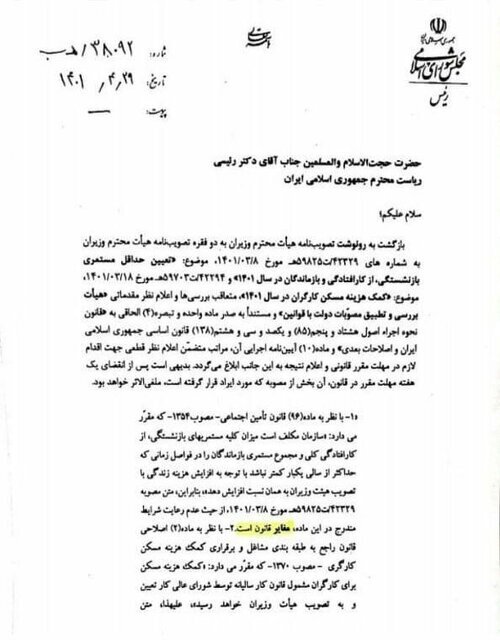 جمهوری اسلامی ایران
مجلس شورای اسلامی
رئیس
شماره: ۳۸۰۹۲/هـ ب
تاریخ: ۱۴۰۱/۴/۲۹
پیوست: —
حضرت حجت‌الاسلام والمسلمین جناب آقای دکتر رئیسی
ریاست محترم جمهوری اسلامی ایران
سلام علیکم؛
بازگشت به رونوشت تصویب‌نامه هیأت محترم وزیران به دو فقره تصویب‌نامه هیأت محترم وزیران
به شماره های ۴۲۳۲۹/ت۵۹۸۲۵هـ مورخ ۱۴۰۱/۰۳/۸، موضوع: «تعیین حداقل مستمری
بازنشستگی، از کارافتادگی و بازماندگان در سال ۱۴۰۱» و ۴۲۲۹۴/ت۵۹۷۰۳هـ مورخ ۱۴۰۱/۰۳/۱۸،
موضوع: «کمک هزینه مسکن کارگران در سال ۱۴۰۱»، متعاقب بررسی‌ها و اعلام نظر مقدماتی «هیأت
بررسی و تطبیق مصوّبات دولت با قوانین» و مستنداً به صدر ماده واحده و تبصره(۴) الحاقی به «قانون
نحوه اجراء اصول هشتاد و پنجم(۸۵) و یکصد و سی و هشتم(۱۳۸) قانون اساسی جمهوری اسلامی
ایران و اصلاحات بعدی» و ماده(۱۰) آیین‌نامه اجرایی آن، مراتب متضمّن اعلام نظر قطعی جهت اقدام
لازم در مهلت مقرر قانونی و اعلام نتیجه به این جانب ابلاغ می‌گردد. بدیهی است پس از انقضای یک
هفته مهلت مقرر در قانون، آن بخش از مصوبه که مورد ایراد قرار گرفته است، ملغی‌الاثر خواهد بود.
«۱- با نظر به ماده(۹۶) قانون تأمین اجتماعی- مصوب ۱۳۵۴- که مقرّر
می دارد: «سازمان مکلف است میزان کلیه مستمریهای بازنشستگی، از
کارافتادگی کلی و مجموع مستمری بازماندگان را در فواصل زمانی که
حداکثر از سالی یکبار کمتر نباشد با توجه به افزایش هزینه زندگی با
تصویب هیئت وزیران به همان نسبت افزایش دهد»، بنابراین، متن مصوبه
۴۲۳۲۹/ت۵۹۸۲۵هـ مورخ ۱۴۰۱/۰۳/۸، از حیث عدم رعایت شرایط
مندرج در این ماده، مغایر قانون است. ۲- با نظر به ماده(۲) اصلاحی
قانون راجع به طبقه بندی مشاغل و برقراری کمک هزینه مسکن
کارگری - مصوب ۱۳۷۰- که مقرّر می دارد: «کمک هزینه مسکن
برای کارگران مشمول قانون کار سالیانه توسط شورای عالی کار تعیین
و به تصویب هیأت وزیران خواهد رسید»، علیهذا، متن